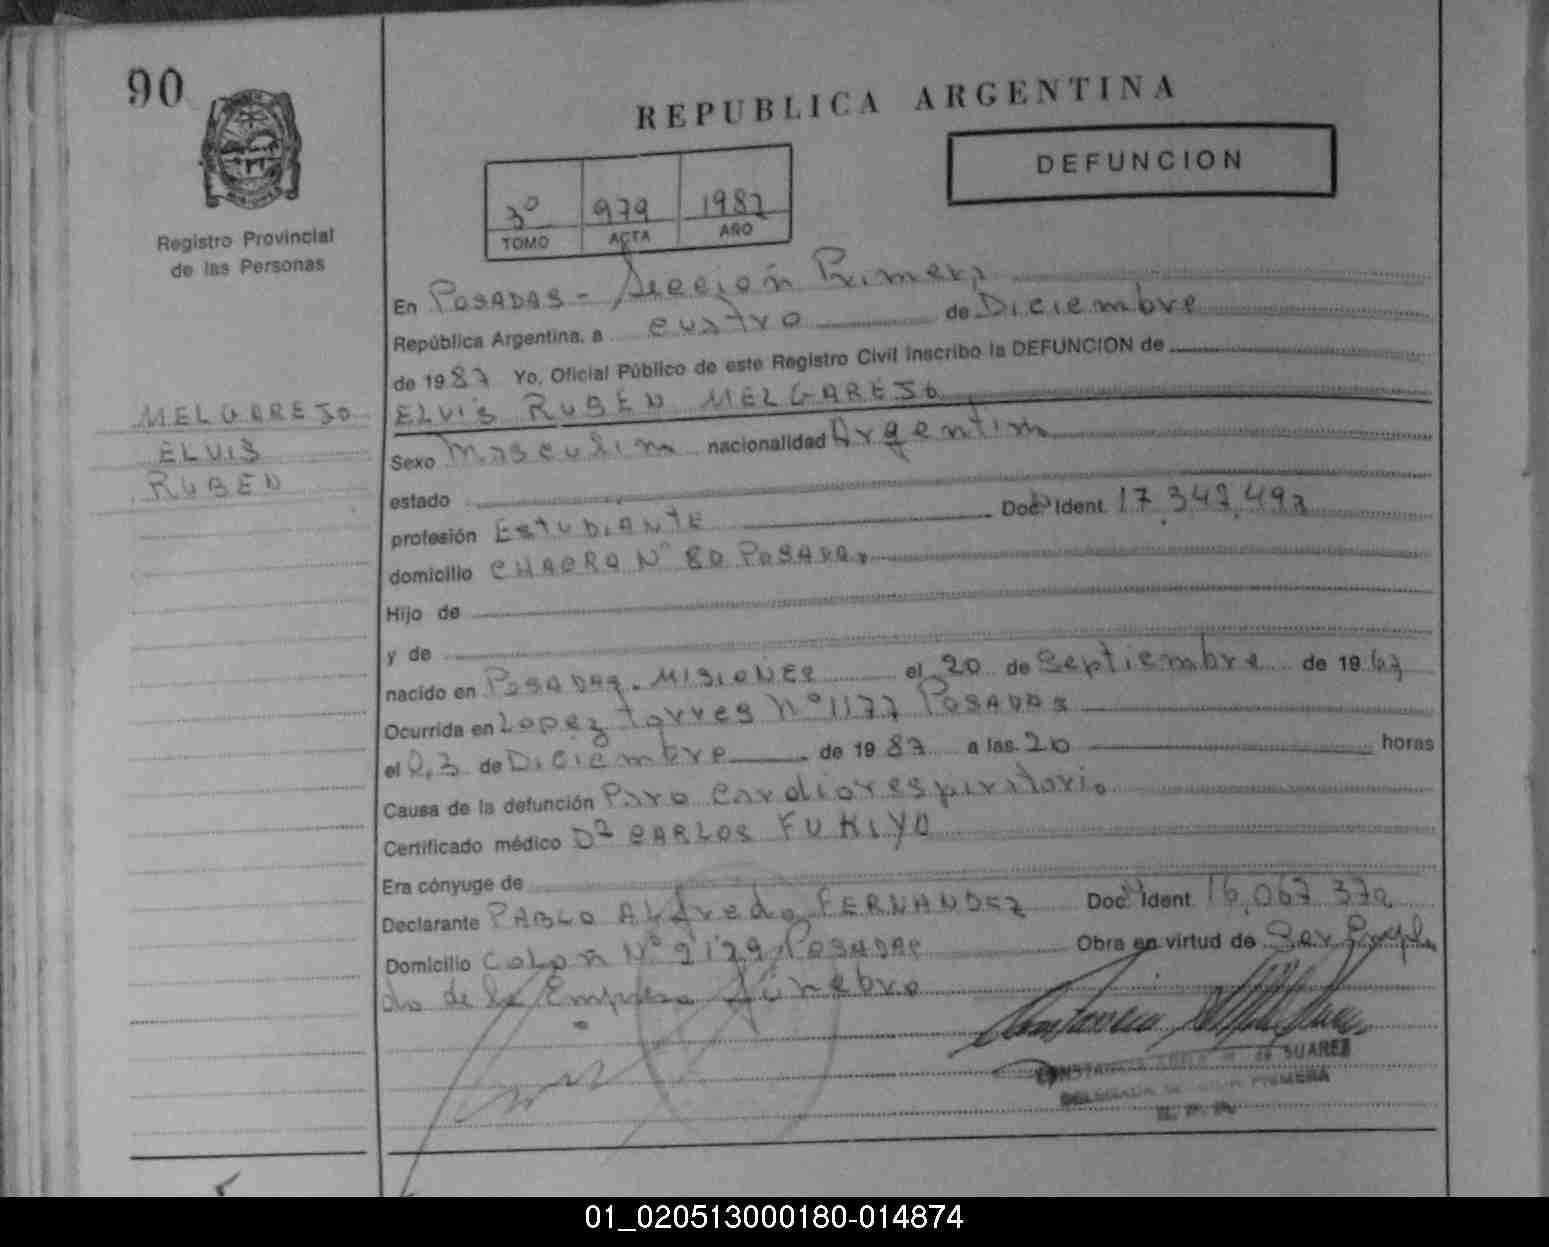 90
REPUBLICA ARGENTINA
DEFUNCION
3º 979 1987
TOMO ACTA AÑO
Registro Provincial
de las Personas
En POSADAS - Sección Primera
República Argentina, a cuatro de Diciembre
de 1987 Yo, Oficial Público de este Registro Civil inscribo la DEFUNCION de
MELGAREJO
ELVIS
RUBEN
ELVIS RUBEN MELGAREJO
Sexo Masculino nacionalidad Argentina
estado
profesión ESTUDIANTE Doc. Ident. 17.342.497
domicilio CHACRA Nº 80 POSADAS
Hijo de
y de
nacido en POSADAS - MISIONES el 20 de Septiembre de 1967
Ocurrida en Lopez Torres Nº 1177 POSADAS
el 03 de Diciembre de 1987 a las 20 horas
Causa de la defunción Paro Cardiorespiratorio
Certificado médico Dr CARLOS FUKIYO
Era cónyuge de
Declarante PABLO Alfredo FERNANDEZ Doc. Ident. 16.067.370
Domicilio COLON Nº 2129 POSADAS Obra en virtud de Ser Emplea
do de la Empresa Fúnebre
DE SUAREZ
PRIMERA
01_020513000180-014874